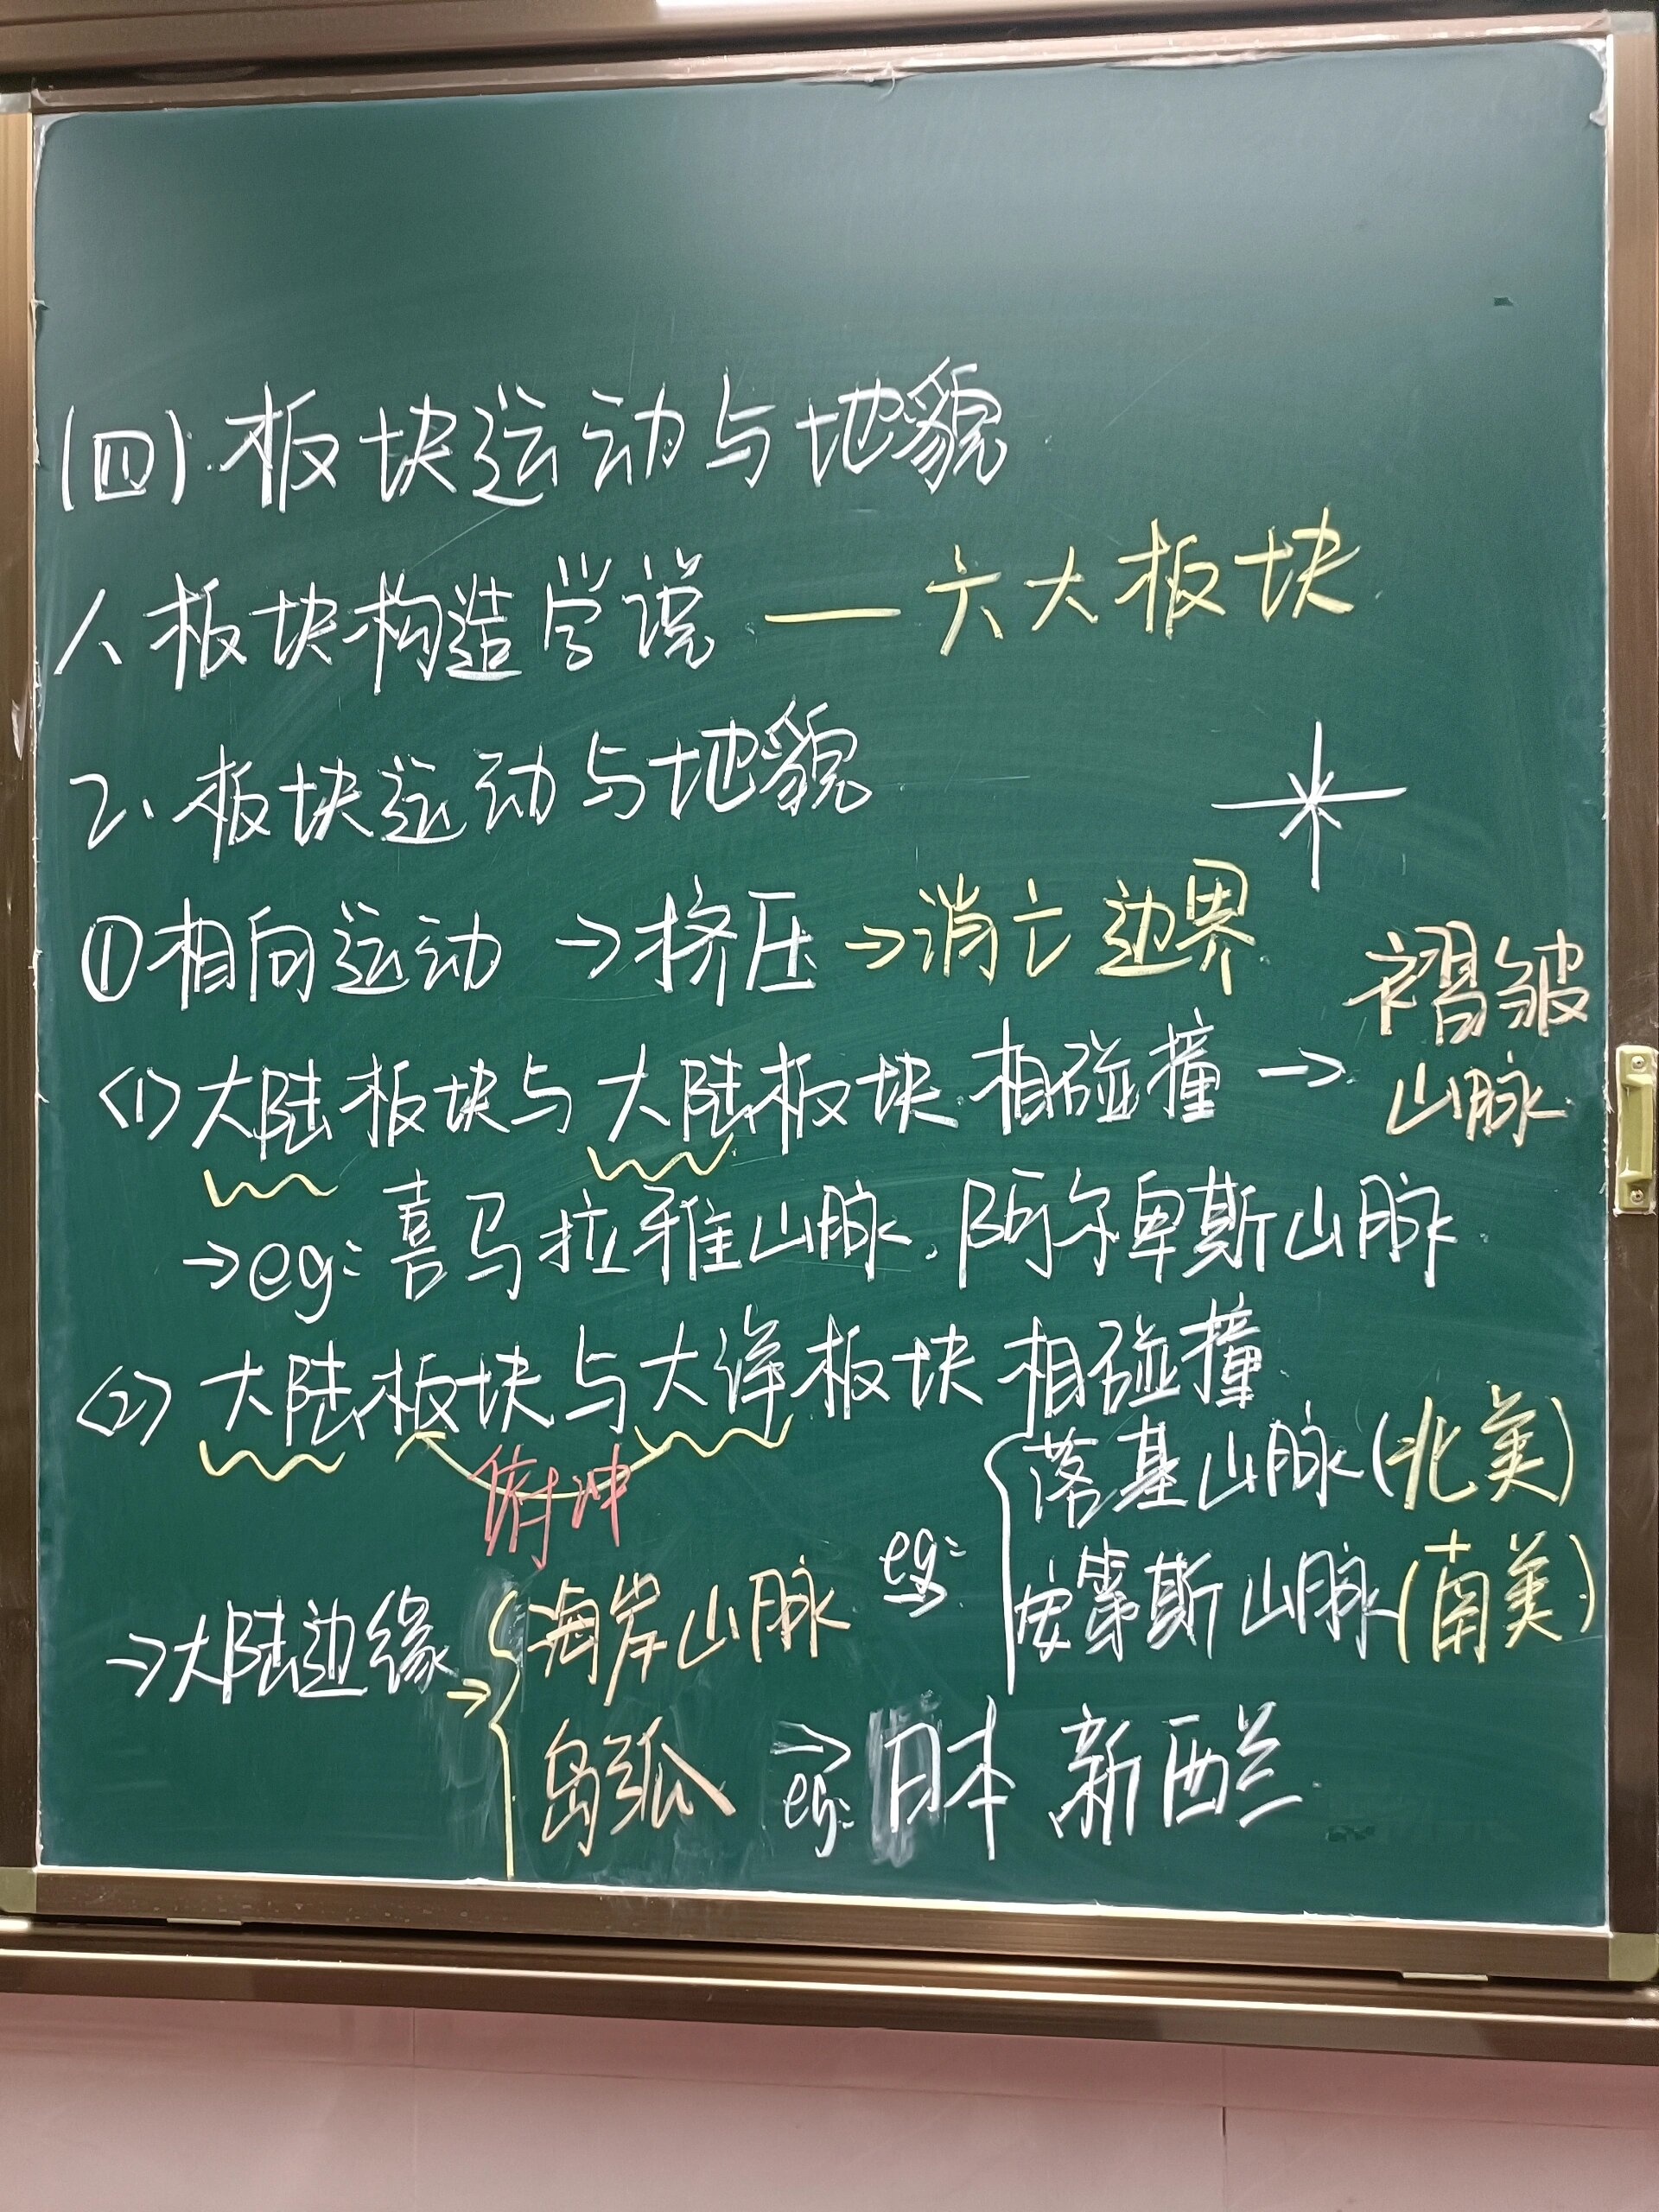 (四).板块运动与地貌
1、板块构造学说 — 六大板块
2、板块运动与地貌
①相向运动 →挤压→消亡边界
<1>大陆板块与大陆板块相碰撞→褶皱山脉
→eg:喜马拉雅山脉、阿尔卑斯山脉.
<2>大陆板块与大洋板块相碰撞
俯冲
→大陆边缘→{海岸山脉 eg:{落基山脉(北美)
安第斯山脉(南美)
岛弧 → eg:日本 新西兰.